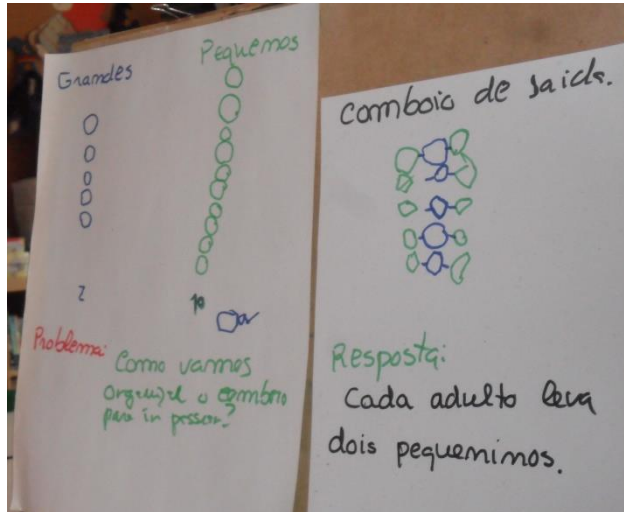 Grandes
Pequenos
10
Problema:
Como vamos
o comboio
para ir passear?
Comboio de saída.
Resposta:
Cada adulto leva
dois pequeninos.